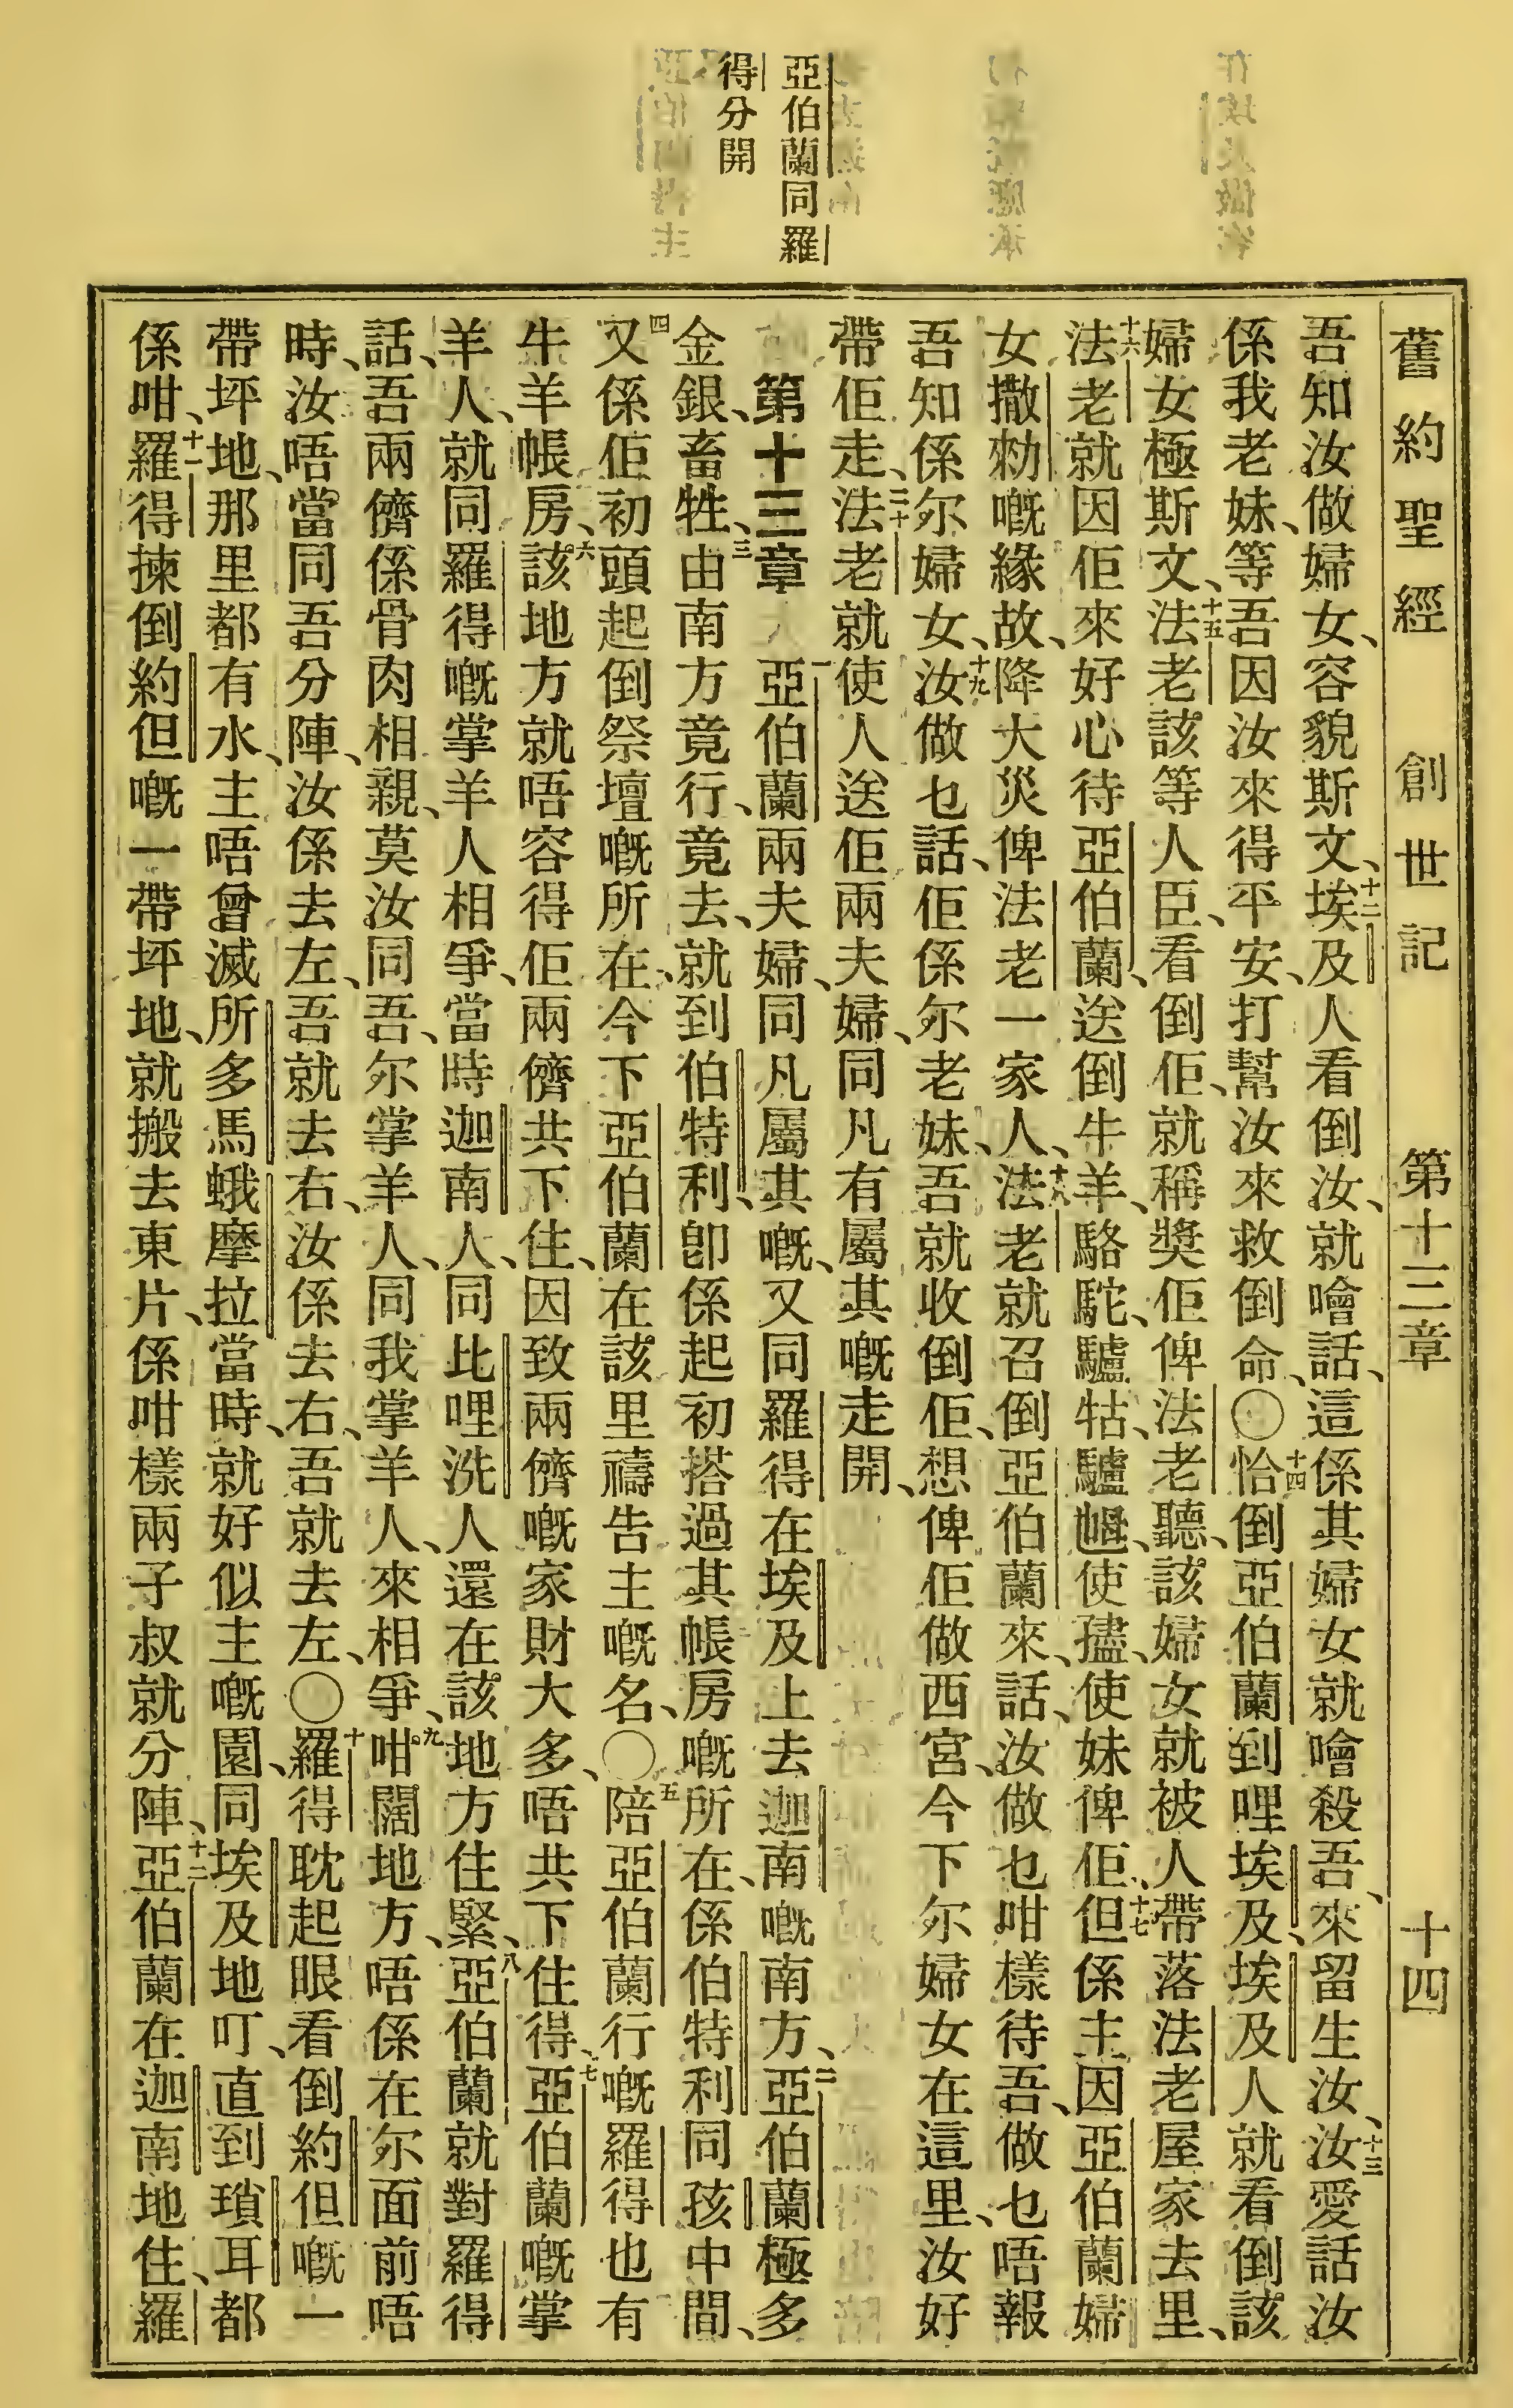 舊約聖經　創世記　第十三章　十四
亞伯蘭同羅
得分開
吾知汝做婦女、容貌斯文、十二埃及人看倒汝、就噲話、這係其婦女就噲殺吾、來留生汝、十三汝愛話汝
係我老妹、等吾因汝來得平安、打幫汝來救倒命、〇十四恰倒亞伯蘭到哩埃及、埃及人就看倒該
婦女極斯文、十五法老該等人臣、看倒佢、就稱獎佢俾法老聽、該婦女就被人帶落法老屋家去里、
十六法老就因佢來好心待亞伯蘭、送倒牛羊、駱駝、驢牯、驢𡜵、使孻、使妹俾佢、十七但係主因亞伯蘭婦
女撒勑嘅緣故、降大災俾法老一家人、十八法老就召倒亞伯蘭來、話、汝做乜咁樣待吾、做乜唔報
吾知係尔婦女、十九汝做乜話、佢係尔老妹、吾就收倒佢、想俾佢做西宮、今下尔婦女在這里、汝好
帶佢走、二十法老就使人送佢兩夫婦、同凡有屬其嘅走開、
第十三章　一亞伯蘭兩夫婦、同凡屬其嘅、又同羅得在埃及上去迦南嘅南方、二亞伯蘭極多
金銀、畜牲、三由南方竟行、竟去、就到伯特利、卽係起初搭過其帳房嘅所在、係伯特利同孩中間、
四又係佢初頭起倒祭壇嘅所在、今下亞伯蘭在該里禱告主嘅名、〇五陪亞伯蘭行嘅羅得也有
牛羊帳房、六該地方就唔容得佢兩儕共下住、因致兩儕嘅家財大多、唔共下住得、七亞伯蘭嘅掌
羊人、就同羅得嘅掌羊人相爭、當時迦南人、同比哩洗人還在該地方住緊、八亞伯蘭就對羅得
話、吾兩儕係骨肉相親、莫汝同吾、尔掌羊人、同我掌羊人、來相爭、九咁闊地方、唔係在尔面前唔
時、汝唔當同吾分陣、汝係去左、吾就去右、汝係去右、吾就去左、〇十羅得耽起眼看倒約但嘅一
帶坪地、那里都有水、主唔曾滅所多馬蛾摩拉當時、就好似主嘅園、同埃及地叮、直到瑣耳都
係咁、十一羅得揀倒約但嘅一帶坪地、就搬去東片、係咁樣兩子叔就分陣、十二亞伯蘭在迦南地住、羅